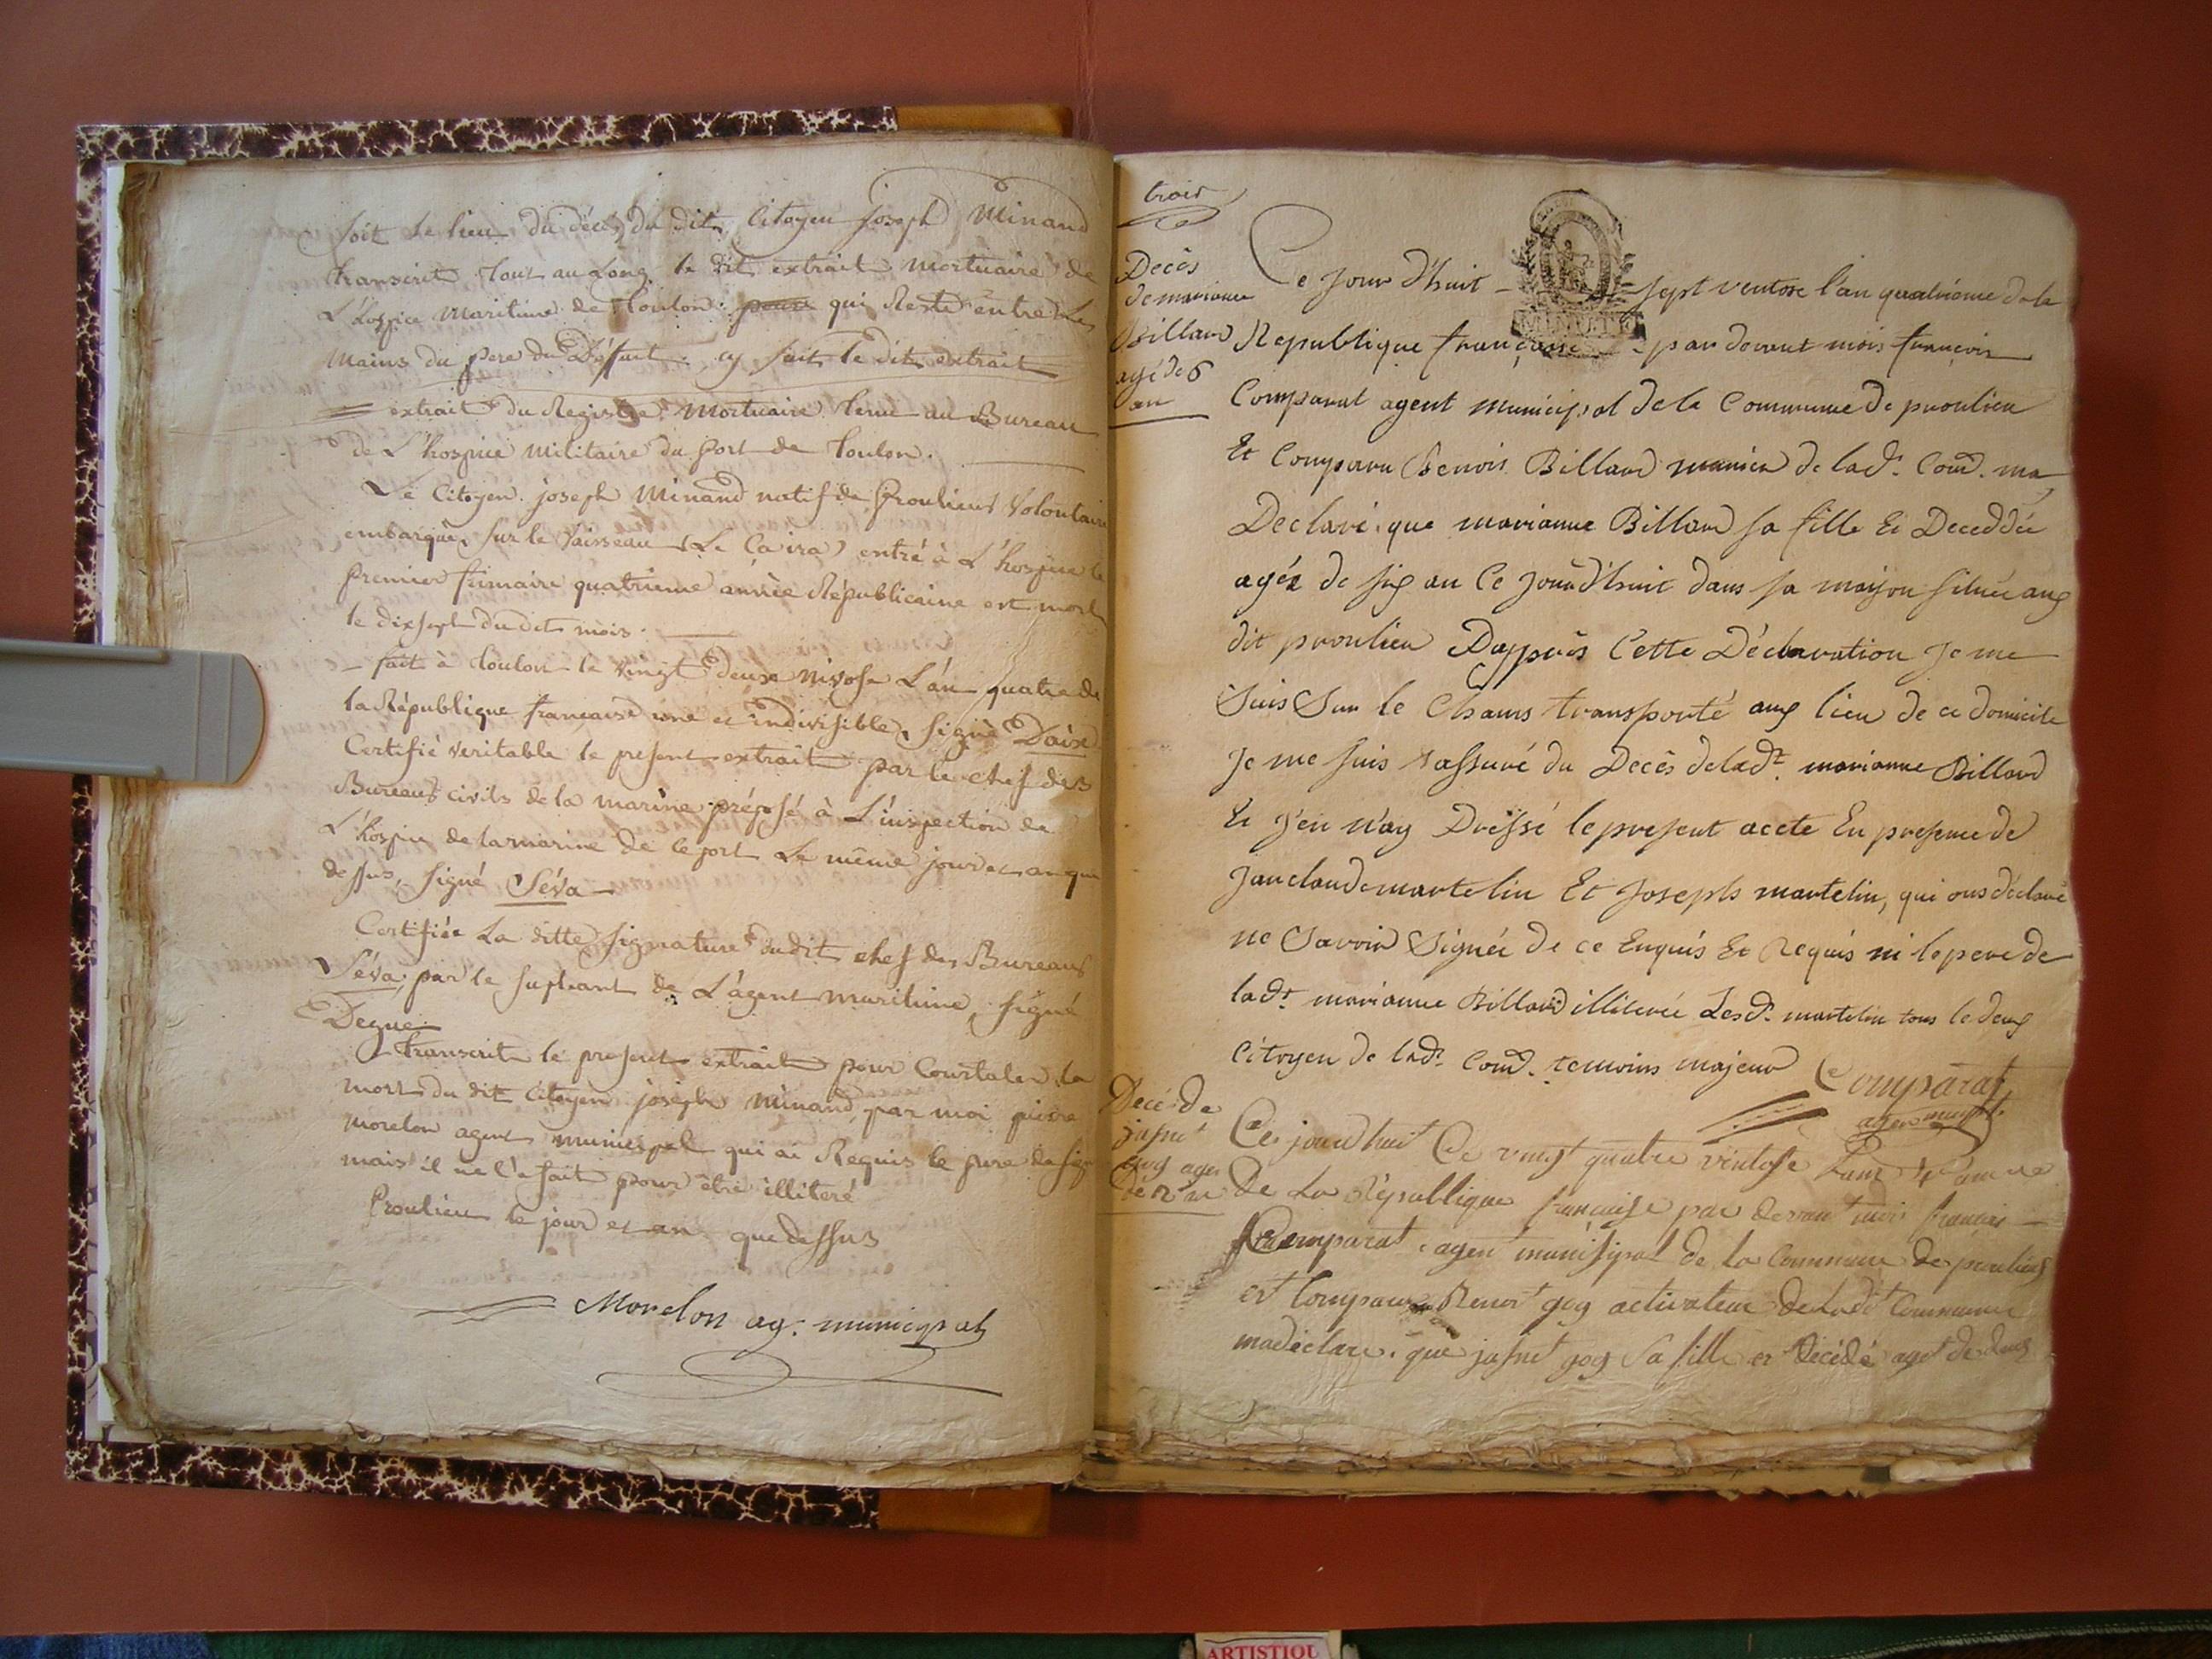 soit le lieu du décés du dit Citoyen Joseph Minand
transcrit tout au Long le dit extrait mortuaire de
L'hospice maritime de Toulon. pour qui Reste entre Les
mains du pere du Défunt. cy suit le dit extrait
extrait du Registre Mortuaire tenu au Bureau
de L'hospice Militaire du port de Toulon.
Le Citoyen joseph Minand natif de Proulieu Volontaire
embarqué sur le Vaisseau (Le Ca ira) entré à L'hospice le
premier frimaire quatrieme année Républicaine est mort
le dix sept du dit mois.
fait à Toulon le vingt deux nivose L'an quatre de
la République française une et indivisible, signé Daix
Certifié veritable le present extrait par le chef des
Bureaux civils de la marine préposé à L'inspection de
L'hospice de la marine de ce port Le même jour et an que
dessus, signé Séva
Certifiée La ditte signature du dit chef des Bureaux
Séva, par le supleant de L'agent maritime, signé
Degue
transcrit le present extrait pour Constater la
mort du dit Citoyen joseph Minand, par moi pierre
Morelon agent municipal qui ai Requis le pere de signer
mais il ne l'a fait pour être illiteré
Proulieu le jour et an que dessus
Morelon ag. municipal
trois
Decès
de marianne
Billard
agé de 6
an
Ce jour d'huit sept ventose l'an quatrieme de la
Republique française par devant mois françois
Comparat agent municipal de la Commune de proulieu
Et Comparu Benois Billard de lad. Com. ma
Declaré que marianne Billard sa fille Et Deceddée
agéz de six an Ce jourd'huit dans sa maison situeé aux
dit proulieu Dapprès Cette Déclaration Je me
Suis Sur le Chams transporté aux lieu de ce domicile
Je me suis assuré du Decès de lad.t marianne Billard
Et J'en n'ay Dressé le present acete En presence de
Janclaude martelin Et Joseph martelin, qui ons déclaré
ne Savoir Signér de ce Enquis Et Requis ni le pere de
lad.t marianne Billard illiteréé Lesd. martelin tous le deux
Citoyen de lad. Com. temoins majeur
Comparat
agent municipal
Decé de
josnet
goy agee
de 2 an
Ce jourd huit Ce vingt quatre vintose Lanné
De La République francaise par devant moi francois
Comparat agent munisipal de la Commune de proulieux
et Comparu Benoit goy cultivateur de Ladit Commune
ma déclare que josnet goy Sa fille et décédé agé de deux
ARTISTIQU